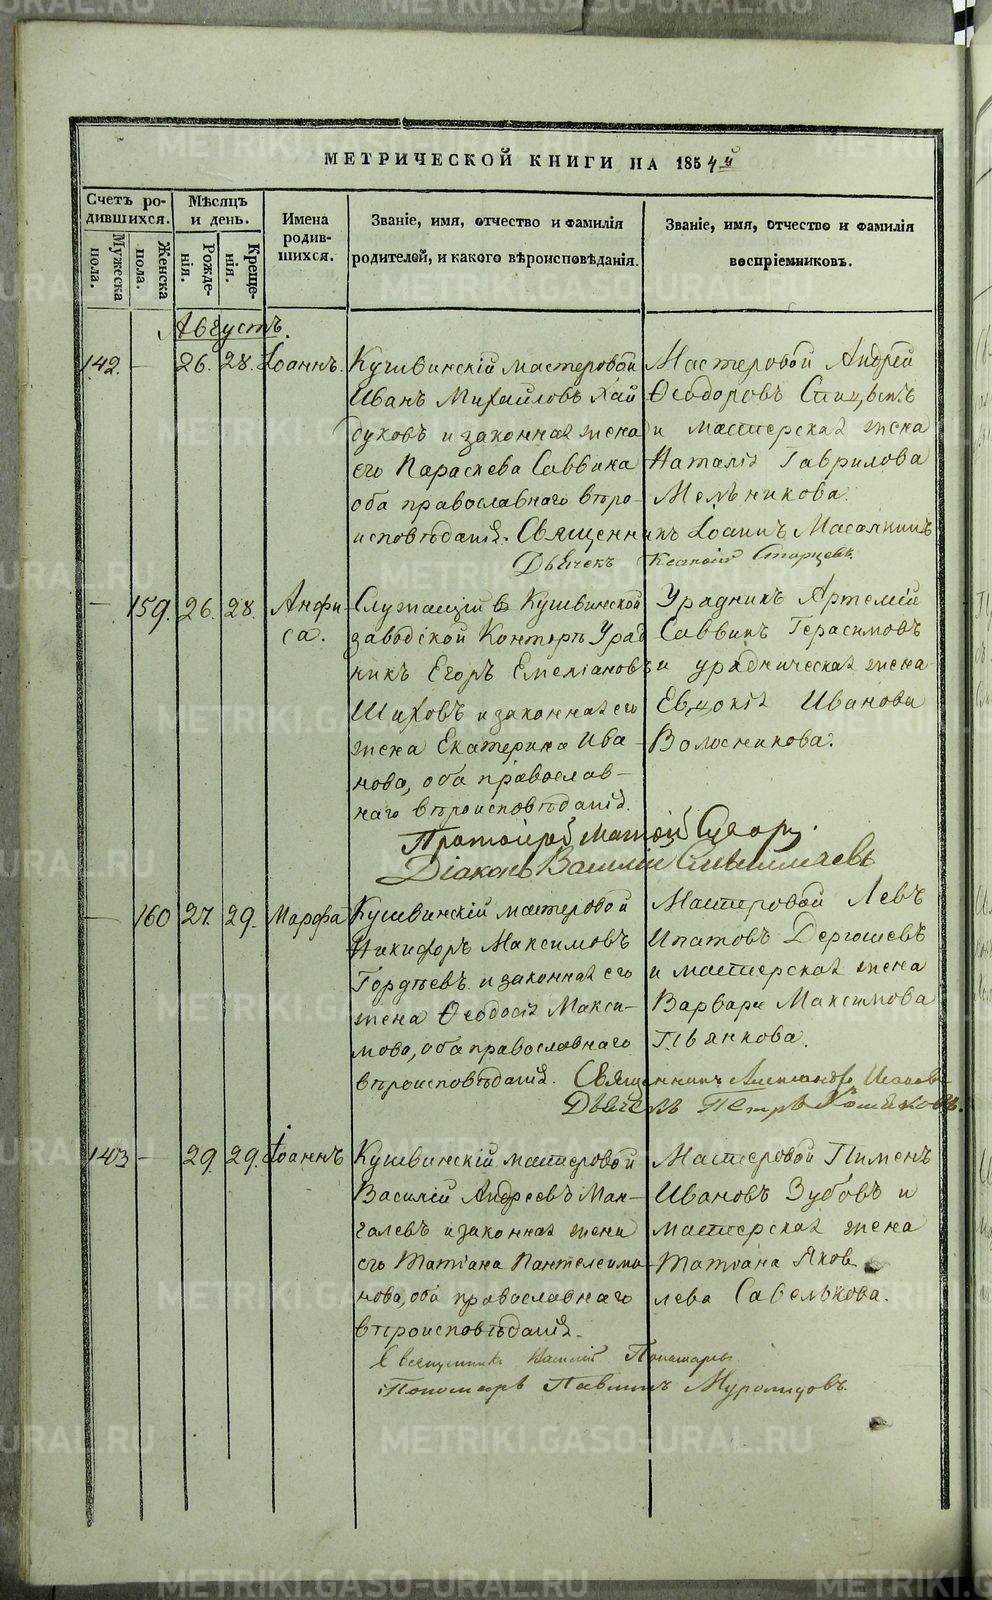 МЕТРИЧЕСКОЙ КНИГИ НА 1854й
Счетъ ро-
дившихся.
Мужеска
пола.
Женска
пола.
Мѣсяцъ
и день.
Рожде-
нія.
Креще-
нія.
Имена
родив-
шихся.
Званіе, имя, отчество и фамилія
родителей, и какого вѣроисповѣданія.
Званіе, имя, отчество и фамилія
воспріемниковъ.
Августъ.
142. — 26. 28. Іоаннъ.
Кушвинскій мастеровой
Иванъ Михайловъ Хай
дуковъ и законная жена
его Параскева Саввина
оба православнаго вѣро-
исповѣданія.
Мастеровой Андрей
Ѳеодоровъ Спицынъ
и мастерская жена
Наталія Гаврилова
Мельникова.
Священникъ Іоаннъ
Дьячекъ Старцевъ.
— 159. 26. 28. Анфи-
са.
Служащій въ Кушвинской
заводской Конторѣ Уряд
никъ Егоръ Емеліановъ
Шаховъ и законная его
жена Екатерина Ива
нова, оба православ-
наго вѣроисповѣданія.
Урядникъ Артемій
Саввинъ Герасимовъ
и урядническая жена
Евдокія Иванова
Волосникова.
Протоіерей
Діаконъ Василій
— 160 27. 29. Марфа
Кушвинскій мастеровой
Никифоръ Максимовъ
Гордѣевъ и законная его
жена Ѳеодосія Макси-
мова, оба православнаго
вѣроисповѣданія.
Мастеровой Левъ
Ипатовъ Дергошевъ
и мастерская жена
Варвара Максимова
Пьянкова.
Священникъ Александръ
Дьячекъ Петръ
143 — 29. 29. Іоаннъ
Кушвинскій мастеровой
Василій Андреевъ Ман-
галевъ и законная жена
его Татіана Пантелеимо
нова, оба православнаго
вѣроисповѣданія.
Мастеровой Пименъ
Ивановъ Зубовъ и
мастерская жена
Татіана Яков
лева Савелькова.
Священникъ Василій
Пономарь Павлинъ Муромцовъ.
METRIKI.GASO-URAL.RU